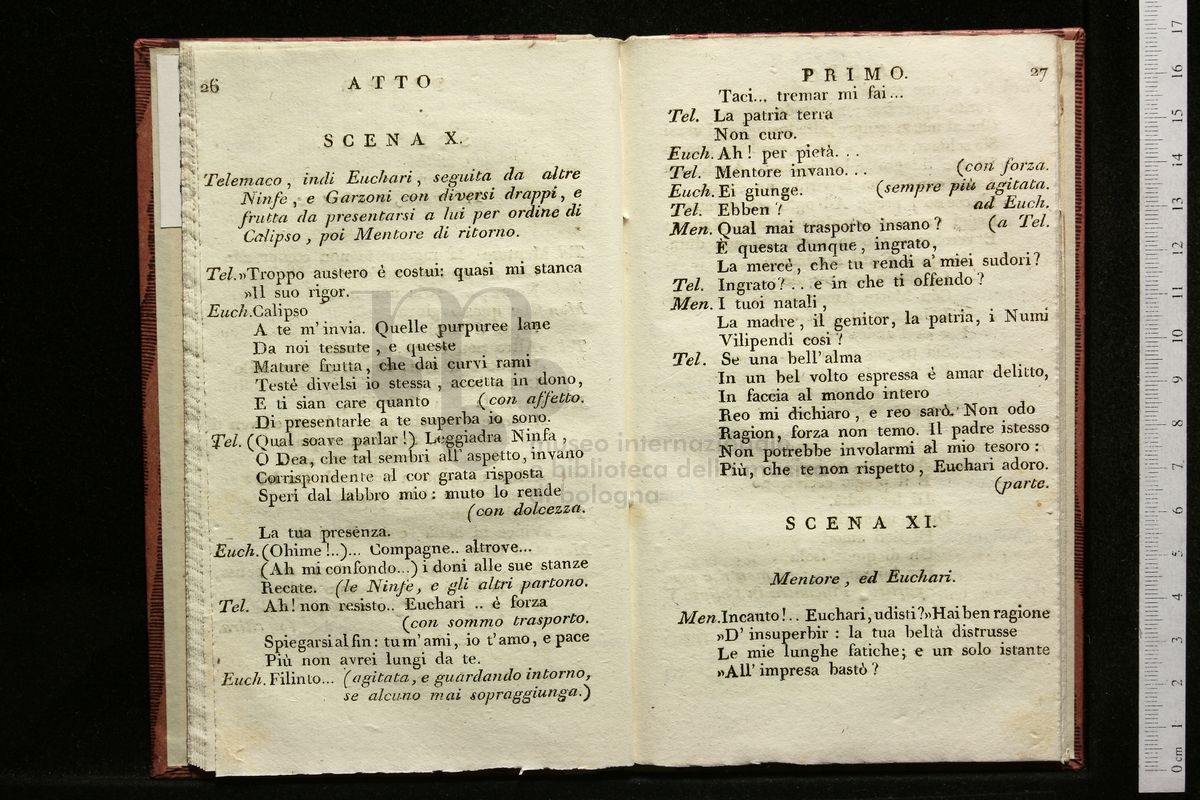 26
ATTO
SCENA X.
Telemaco, indi Euchari, seguita da altre
Ninfe, e Garzoni con diversi drappi, e
frutta da presentarsi a lui per ordine di
Calipso, poi Mentore di ritorno.
Tel.»Troppo austero è costui: quasi mi stanca
»Il suo rigor.
Euch.Calipso
A te m'invia. Quelle purpuree lane
Da noi tessute, e queste
Mature frutta, che dai curvi rami
Testè divelsi io stessa, accetta in dono,
E ti sian care quanto (con affetto.
Di presentarle a te superba io sono.
Tel. (Qual soave parlar!) Leggiadra Ninfa,
O Dea, che tal sembri all'aspetto, invano
Corrispondente al cor grata risposta
Speri dal labbro mio: muto lo rende
(con dolcezza.
La tua presenza.
Euch.(Ohime!..)... Compagne.. altrove...
(Ah mi confondo...) i doni alle sue stanze
Recate. (le Ninfe, e gli altri partono.
Tel. Ah! non resisto.. Euchari .. è forza
(con sommo trasporto.
Spiegarsi al fin: tu m'ami, io t'amo, e pace
Più non avrei lungi da te.
Euch.Filinto... (agitata, e guardando intorno,
se alcuno mai sopraggiunga.)
PRIMO.
27
Taci... tremar mi fai...
Tel. La patria terra
Non curo.
Euch. Ah! per pietà. . .
Tel. Mentore invano. . . (con forza.
Euch. Ei giunge. (sempre più agitata.
Tel. Ebben? ad Euch.
Men. Qual mai trasporto insano? (a Tel.
È questa dunque, ingrato,
La mercè, che tu rendi a' miei sudori?
Tel. Ingrato? . . e in che ti offendo?
Men. I tuoi natali,
La madre, il genitor, la patria, i Numi
Vilipendi così?
Tel. Se una bell'alma
In un bel volto espressa è amar delitto,
In faccia al mondo intero
Reo mi dichiaro, e reo sarò. Non odo
Ragion, forza non temo. Il padre istesso
Non potrebbe involarmi al mio tesoro:
Più, che te non rispetto, Euchari adoro.
(parte.
SCENA XI.
Mentore, ed Euchari.
Men.Incanto!.. Euchari, udisti?»Hai ben ragione
»D' insuperbir: la tua beltà distrusse
Le mie lunghe fatiche; e un solo istante
»All' impresa bastò?
m
museo internazionale
biblioteca della
bologna
0 cm 1 2 3 4 5 6 7 8 9 10 11 12 13 14 15 16 17